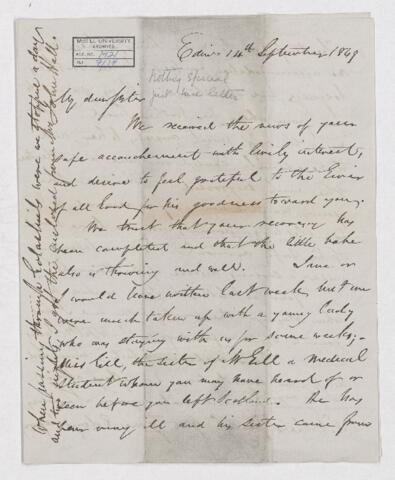 McGILL UNIVERSITY
ARCHIVES
ACC. NO.
REF.
Edinr 14th September 1869
Nothing special
just nice letter
My dear Sister
We received the news of your
safe accouchement with lively interest,
and desire to feel grateful to the Giver
of all Good for his goodness toward you.
We trust that your recovery has
been completed and that the little babe
also is thriving and well. Jane or
I would have written last week but we
were much taken up with a young lady
who was staying with us for some weeks,
Miss Gill, the sister of Mr Gill a medical
student whom you may have heard of or
seen before you left Scotland. He has
been very ill and his sister came from
When passing through Galashiels were us stopped a day
and two nights, I got the enclosed from Mr John Hall.